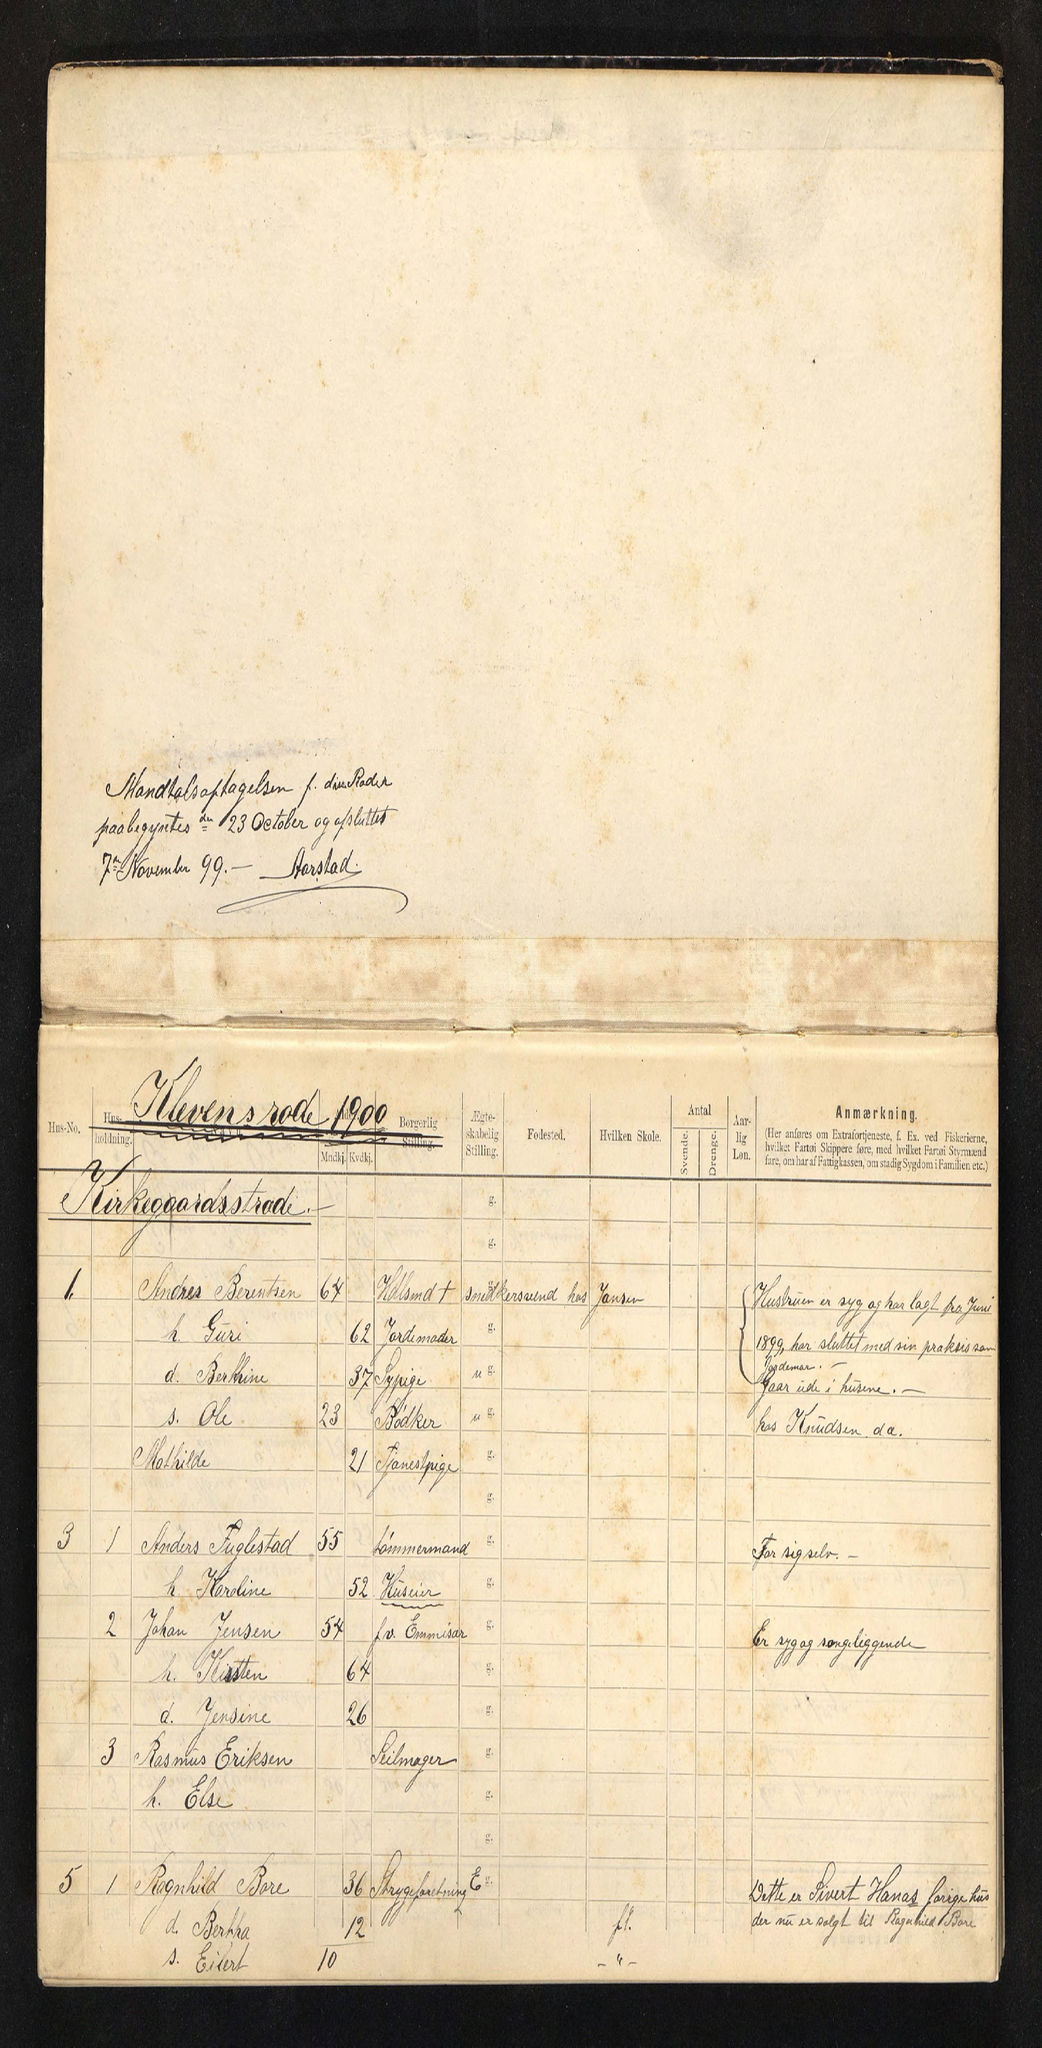 Mandtalsoptagelsen f. disse Roder
paabegyntes den 23 October og afsluttet
7de November 99.— Aarstad.
Klevens rode 1900
Hus-No.
Hus-holdning.
Mndkj. Kvdkj.
Borgerlig Stilling.
Ægte-skabelig Stilling.
Fødested.
Hvilken Skole.
Antal
Svende. Drenge.
Aar-lig Løn.
Anmærkning.
(Her anføres om Extrafortjeneste, f. Ex. ved Fiskerierne,
hvilket Fartøi Skippere føre, med hvilket Fartøi Styrmænd
fare, om har af Fattigkassen, om stadig Sygdom i Familien etc.)
Kirkegaardsstrade.— g.
g.
1. Andres Berentsen 64 Hdlsmd + smedkersvend hos Jansen Hustruen er syg og har lagt fra Juni
h. Guri 62 Jordemoder g. 1899, har sluttet med sin praksis som
Jordemor.—
d. Berthine 37 Sypige u g. Gaar ude i husene.—
s. Ole 23 Bødker u g. hos Knudsen da.
Mathilde 21 Tjenestpige g.
g.
3 1 Anders Fuglestad 55 tømmermand g. For sig selv.—
h. Karoline 52 Huseier g.
2 Johan Jensen 54 f.v. Emmisær g. Er syg og sengeliggende
h. Kirsten 64 g.
d. Jensine 26 g.
3 Rasmus Eriksen Seilmager g.
h. Else g.
g.
5 1 Ragnhild Bore 36 Strygeforetning E g. Dette er Sivert Hanas forige hus
d. Bertha 12 fl. der nu er solgt til Ragnhild Bore
s. Eilert 10 -"-